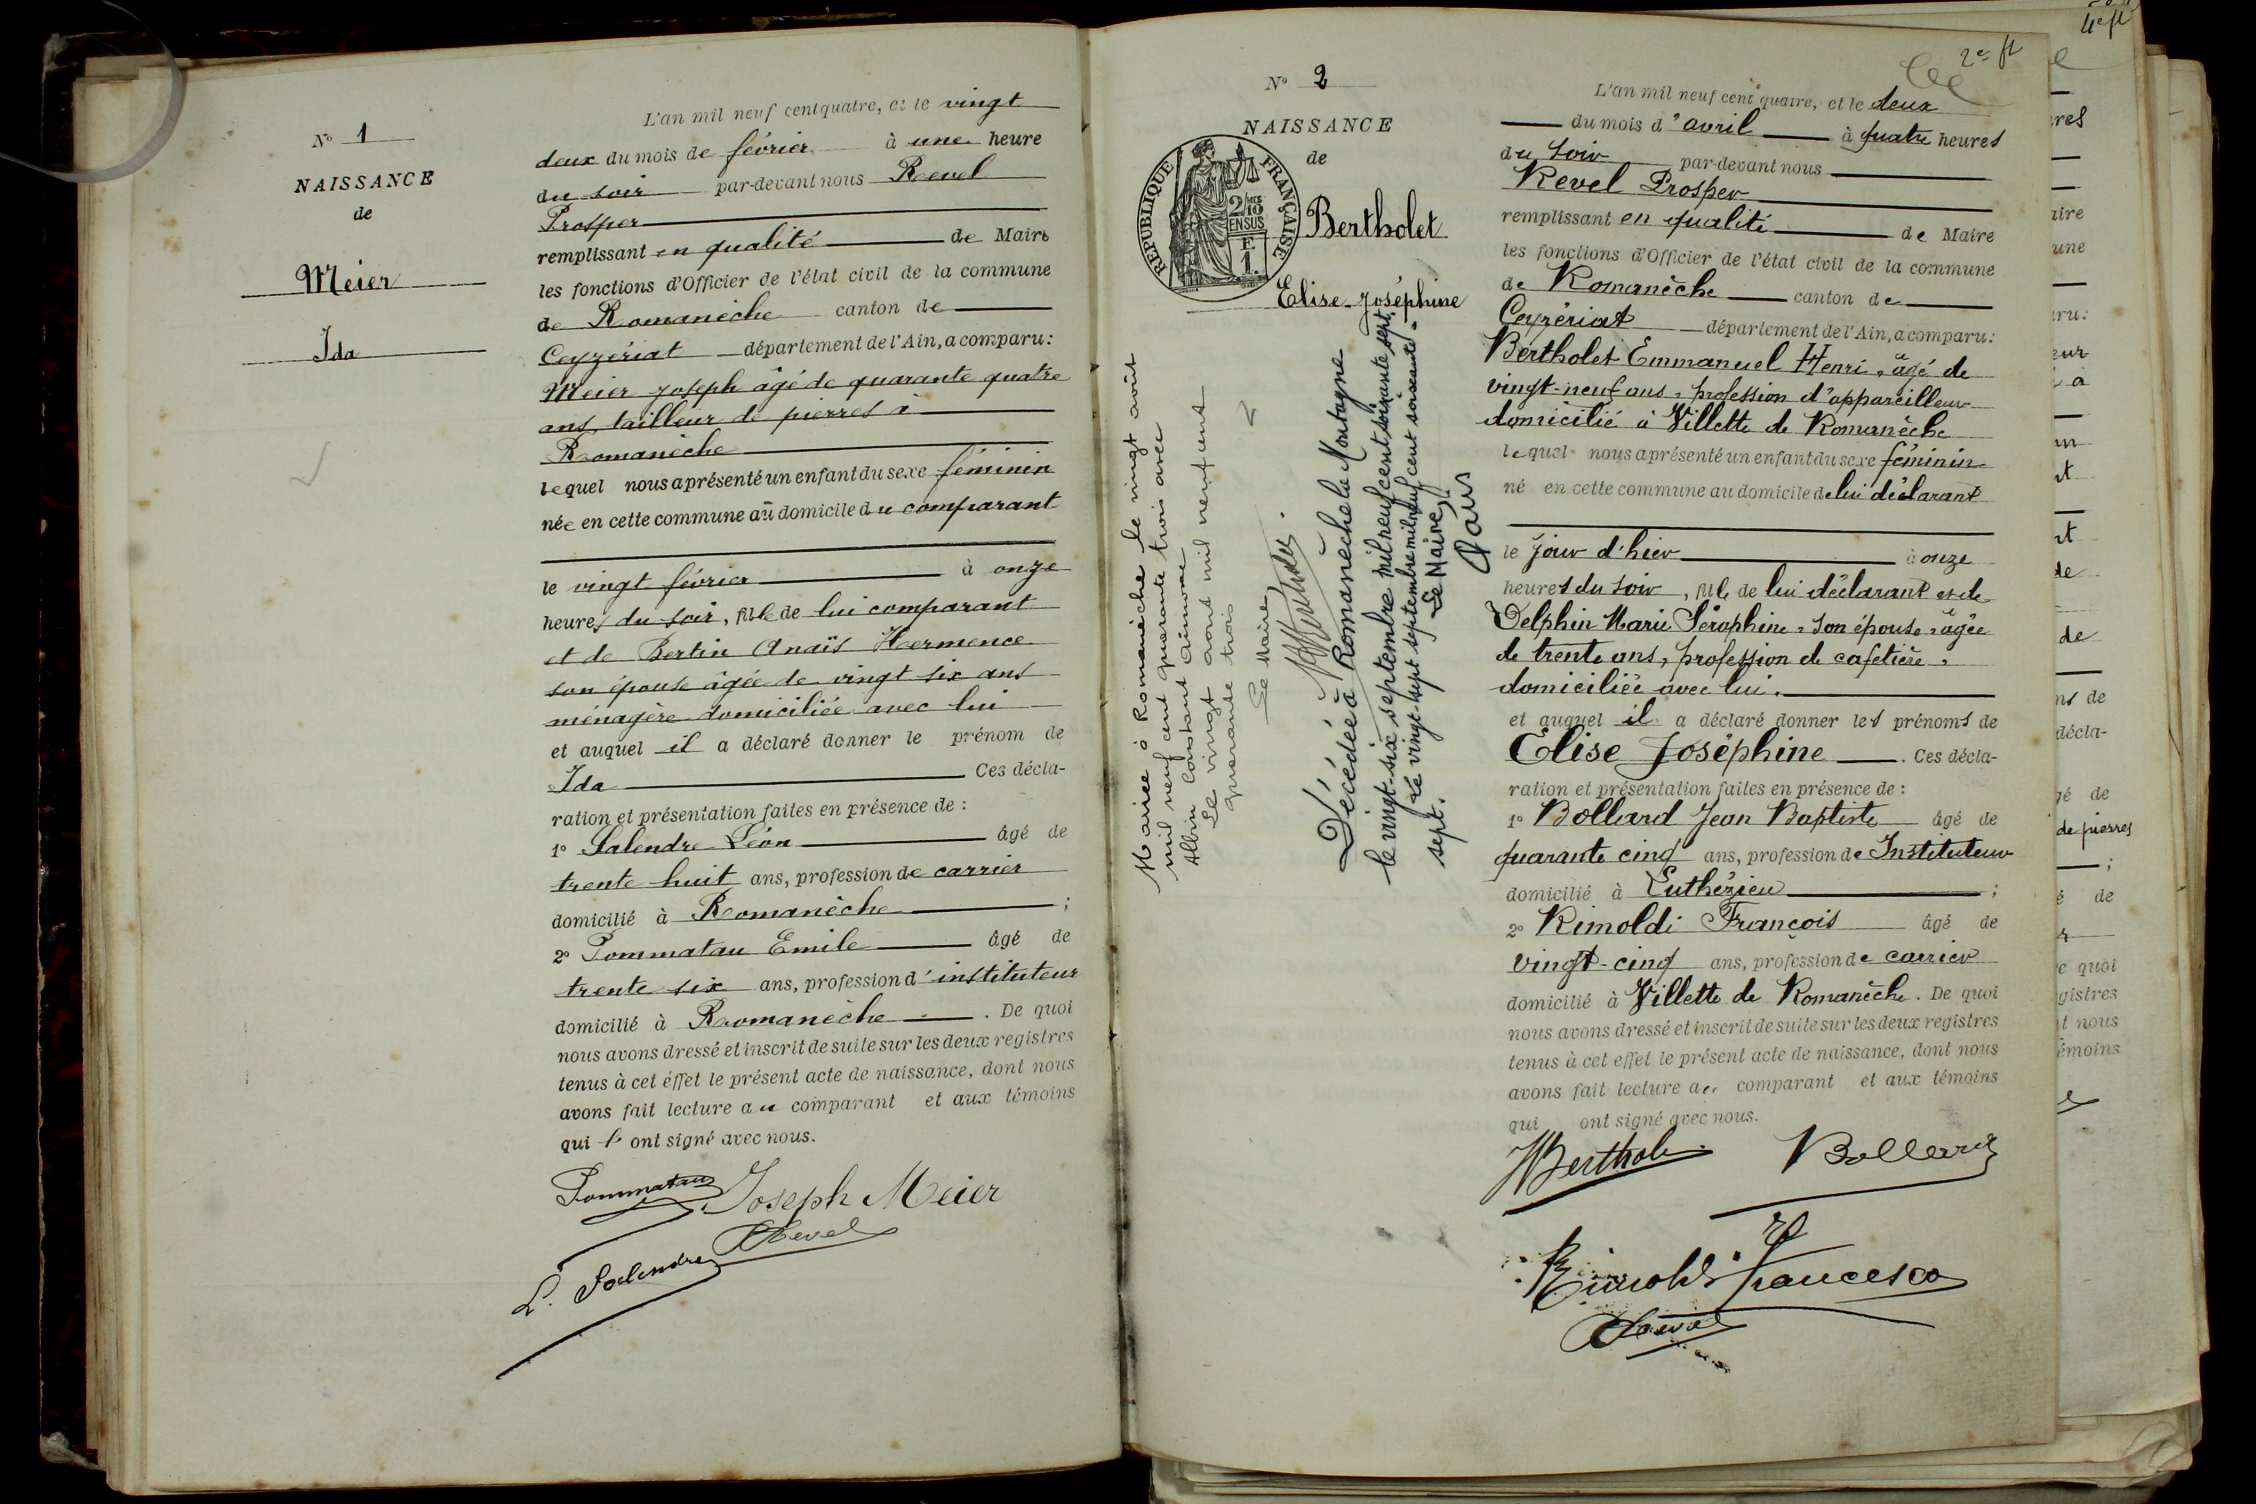 N° 1
NAISSANCE
de
Meier
Ida
L'an mil neuf cent quatre, et le vingt
deux du mois de février à une heure
du soir par-devant nous Revel
Prosper
remplissant en qualité de Maire
les fonctions d'Officier de l'état civil de la commune
de Romanèche canton de
Ceyzériat département de l'Ain, a comparu:
Meier Joseph âgé de quarante quatre
ans, tailleur de pierres à
Romanèche
lequel nous a présenté un enfant du sexe féminin
née en cette commune au domicile du comparant
le vingt février à onze
heures du soir, fille de lui comparant
et de Bertin Anaïs Hermence
son épouse âgée de vingt six ans
ménagère domiciliée avec lui
et auquel il a déclaré donner le prénom de
Ida Ces décla-
ration et présentation faites en présence de :
1° Salendre Léon âgé de
trente huit ans, profession de carrier
domicilié à Romanèche ;
2° Pommatau Emile âgé de
trente six ans, profession d'instituteur
domicilié à Romanèche . De quoi
nous avons dressé et inscrit de suite sur les deux registres
tenus à cet éffet le présent acte de naissance, dont nous
avons fait lecture au comparant et aux témoins
qui l' ont signé avec nous.
Pommatau Joseph Meier
Revel
L. Salendre
2e ft
4e ft
N° 2
NAISSANCE
de
RÉPUBLIQUE FRANÇAISE
2/10
EN SUS
F.
1.
Bertholet
Elise-Joséphine
Mariée à Romanèche le vingt août
mil neuf cent quarante trois avec
Albin Constant Aimone
Le vingt août mil neuf cent
quarante trois
Le Maire
Décédée à Romanèche la Montagne
le vingt-six septembre mil neuf cent soixante sept.
Le vingt-sept septembre mil neuf cent soixante-
sept.
Le Maire,
L'an mil neuf cent quatre, et le deux
du mois d'avril à quatre heures
du soir par-devant nous
Revel Prosper
remplissant en qualité de Maire
les fonctions d'Officier de l'état civil de la commune
de Romanèche canton de
Ceyzériat département de l'Ain, a comparu:
Bertholet Emmanuel Henri, âgé de
vingt-neuf ans, profession d'appareilleur
domicilié à Villette de Romanèche
lequel nous a présenté un enfant du sexe féminin
né en cette commune au domicile de lui déclarant
le jour d'hier à onze
heures du soir, fille de lui déclarant et de
Delphin Marie Séraphine, son épouse, âgée
de trente ans, profession de cafetière,
domiciliée avec lui.
et auquel il a déclaré donner les prénoms de
Elise Joséphine . Ces décla-
ration et présentation faites en présence de :
1° Bollard Jean Baptiste âgé de
quarante cinq ans, profession de Instituteur
domicilié à Luthézieu ;
2° Rimoldi François âgé de
vingt-cinq ans, profession de carrier
domicilié à Villette de Romanèche. De quoi
nous avons dressé et inscrit de suite sur les deux registres
tenus à cet effet le présent acte de naissance, dont nous
avons fait lecture au comparant et aux témoins
qui ont signé avec nous.
HBertholet Bollard
Rimoldi Francesco
Revel
de pierres